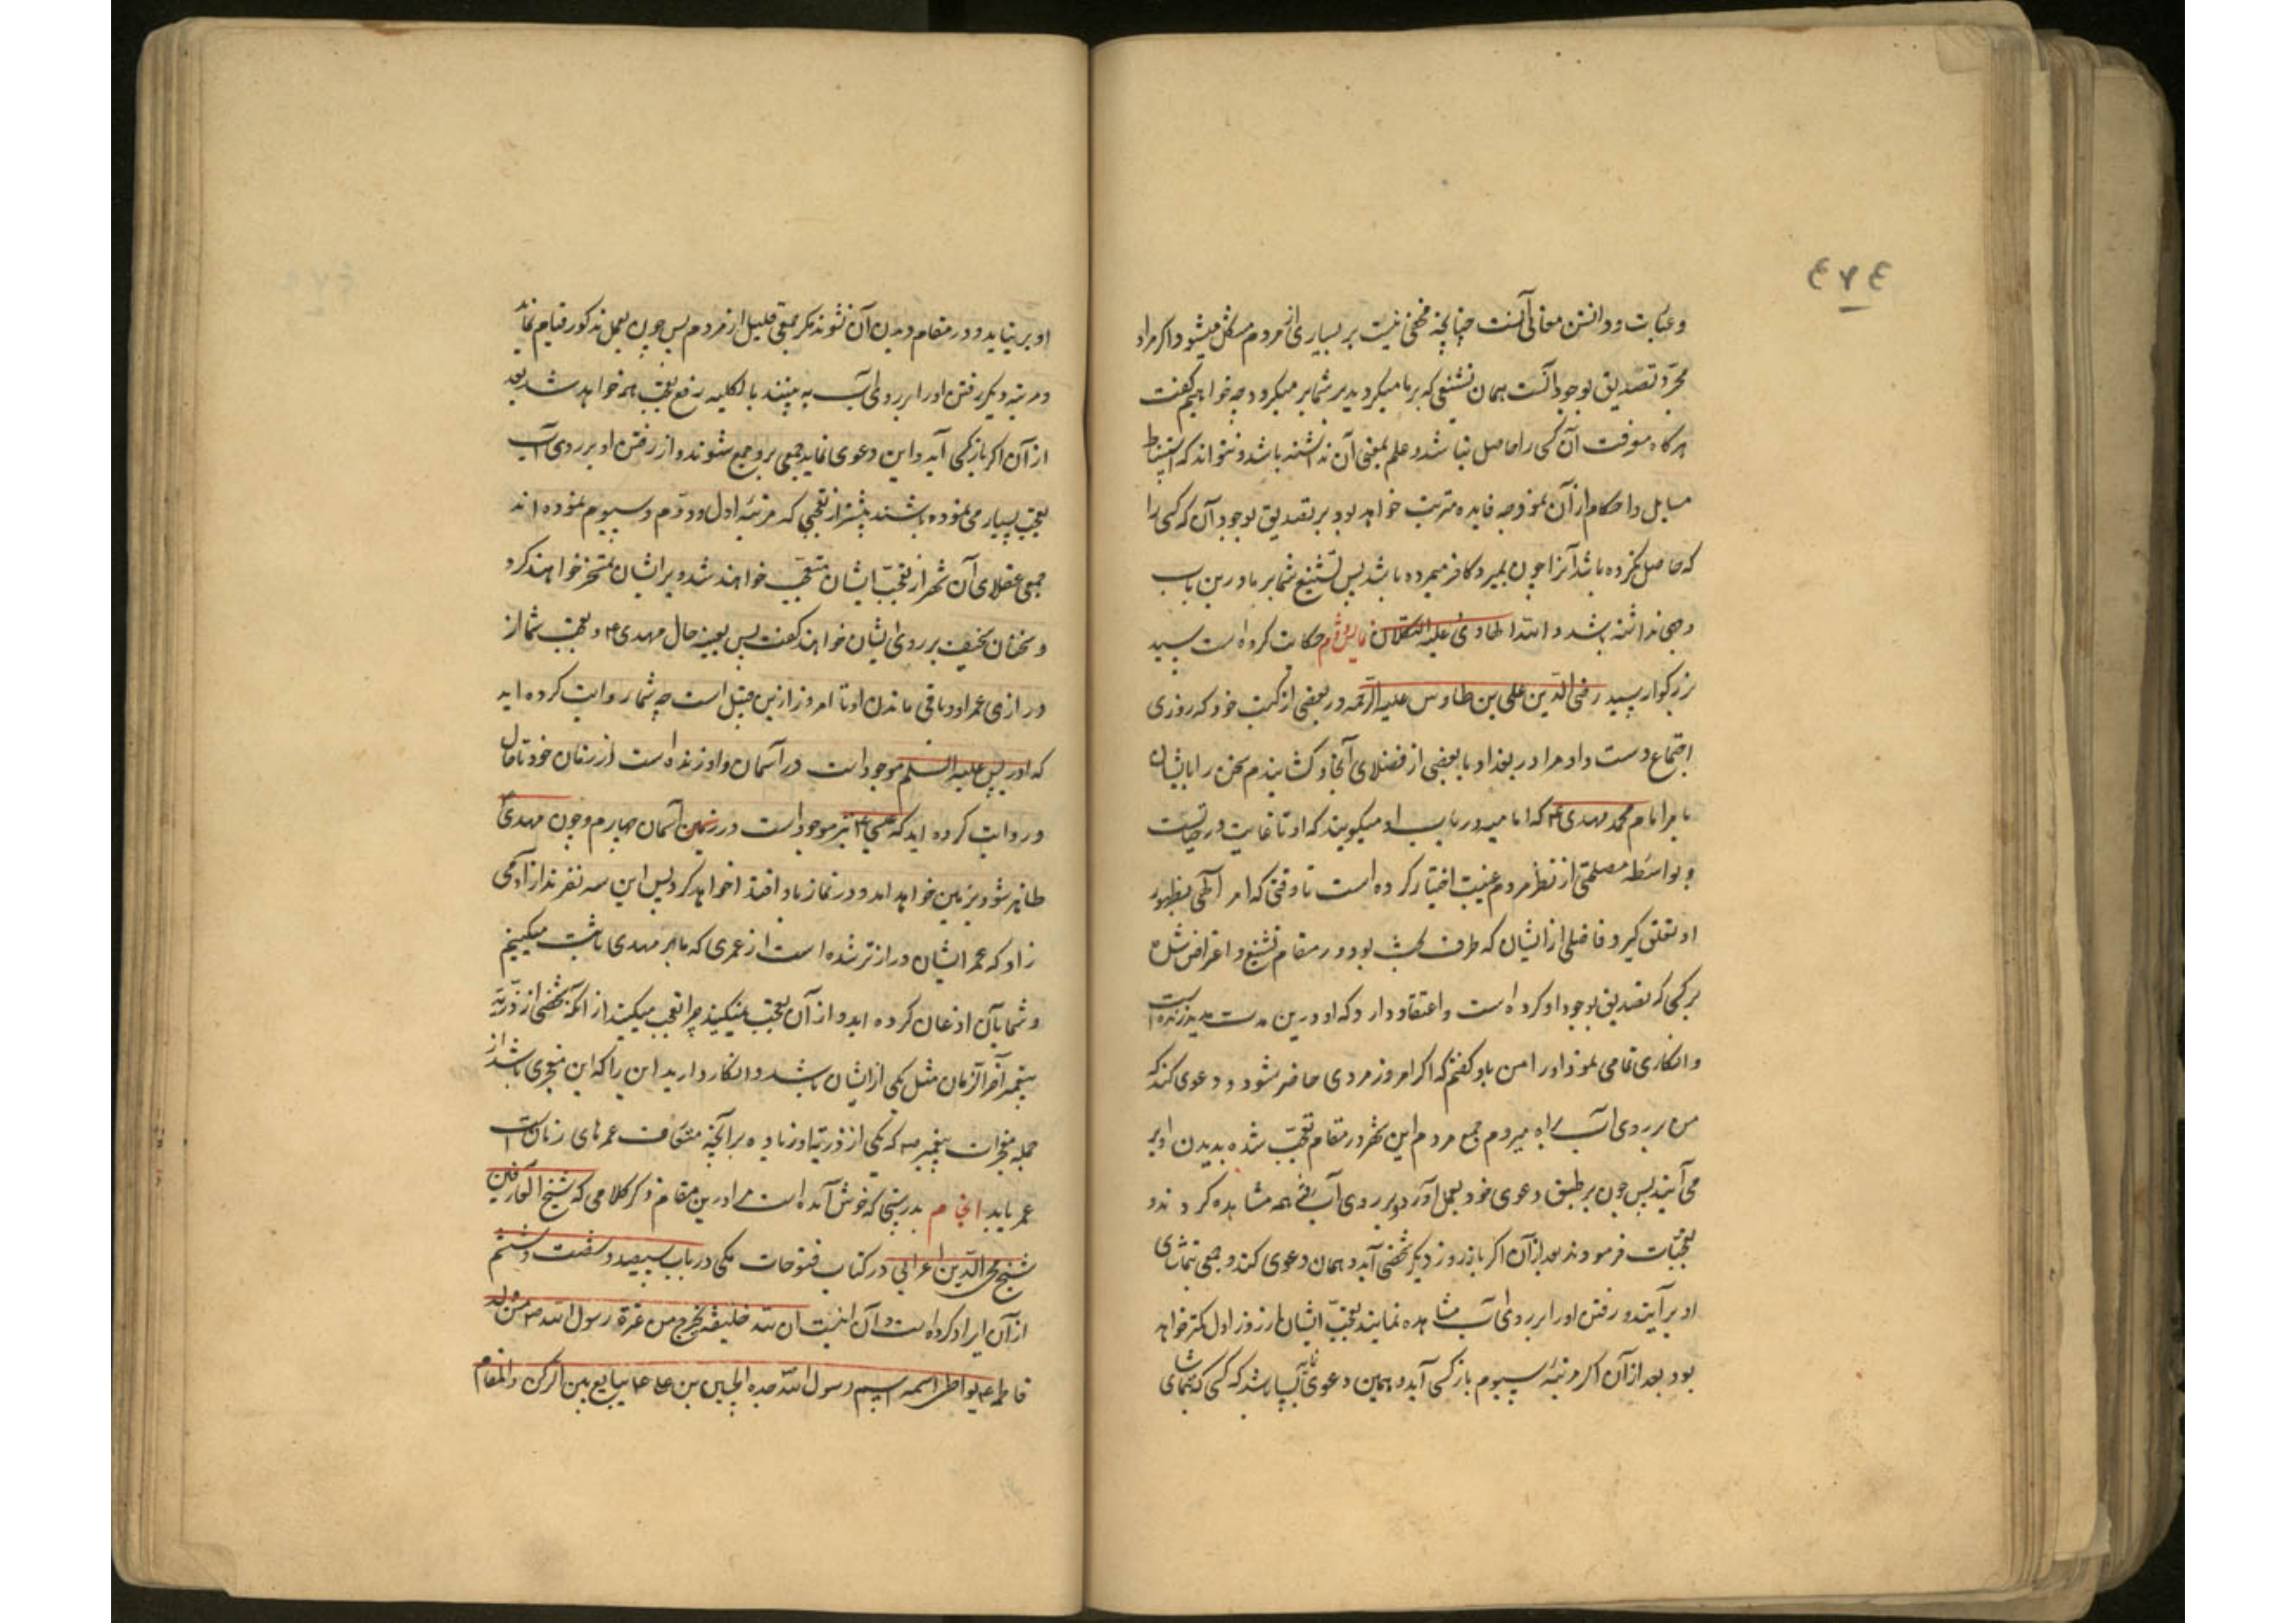 ٤٧٤
وعبارت و دانستن معانی آنست چنانچه مخفی نیست بر بسیاری از مردم مشکل میشود و اگر مراد
مجرّد تصدیق بوجود آنست همان تشنیعی که بر ما میکردید بر شما بر میگردد چه خواهیم گفت
هرگاه معرفت آن کسی را حاصل نباشد و علم بمعنی آن نداشته باشد و نتواند که استنباط
مسایل و احکام از آن نمود چه فایده مترتب خواهد بود بر تصدیق بوجود آن که کسی را
که حاصل نکرده باشد آنرا چون بمیرد کافر مرده باشد پس تشنیع شما بر ما درین باب
وجهی نداشته باشد حکایت کرده است سید
بزرگوار سید رضی الدین علی بن طاوس علیه الرحمه در بعضی از کتب خود که روزی
اجتماع دست داد مرا در بغداد با بعضی از فضلای آنجا و کشانیدم سخن را با ایشان
بامر امام محمد مهدی ع که امامیه در باب او میگویند که او تا غایت در حیاتست
و بواسطه مصلحتی از نظر مردم غیبت اختیار کرده است تا وقتی که امر الهی بظهور
او تعلق گیرد فاضلی از ایشان که طرف بحث بود در مقام تشنیع و اعتراض شد
بر کسی که تصدیق بوجود او کرده است و اعتقاد دارد که او درین مدت مدید زنده است
و انکاری تمامی نمود او را من باو گفتم که اگر امروز مردی حاضر شود و دعوی کند که
من بر روی آب راه میروم جمیع مردم این شهر در مقام تعجّب شده بدیدن او بر
می آیند پس چون بر طبق دعوی خود بعمل آورد و بر روی آب رفت همه مشاهده کردند و
تعجّبات فرمودند بعد از آن اگر باز روز دیگر شخصی آید و همان دعوی کند و جمعی بتماشای
او بر آیند و رفتن او را بر روی آب مشاهده نمایند تعجّب ایشان از روز اول کمتر خواهد
بود بعد از آن اگر مرتبه سیوم باز کسی آید و همین دعوی نماید کسی که بتماشای
او بر نیاید و در مقام دیدن آن نشوند مگر جمعی قلیل از مردم پس چون بعمل مذکور قیام نماید
و مرتبه دیگر رفتن او را بر روی آب به بینند بالکلیه رفع تعجّب هم خواهد شد بعد
از آن اگر باز کسی آید و این دعوی نماید جمعی برو جمع شوند و از رفتن او بر روی آب
تعجّب بسیار می نموده باشند بیشتر از تعجّبی که مرتبه اول و دوّم و سیوم نموده اند
جمعی عقلای آن شهر از تعجّب ایشان متعجّب خواهند شد و بر ایشان تمسخر خواهند کرد
و سخنان سخیف بر روی ایشان خواهند گفت پس بعینه حال مهدی ع و تعجّب شما از
درازی عمر او و باقی ماندن او تا امروز ازین قبیل است چه شما روایت کرده اید
که ادریس علیه السلم موجود است در آسمان و او زنده است از زمان خود تا حال
و روایت کرده اید که عیسی ع نیز موجود است در زمین آسمان چهارم و چون مهدی ع
ظاهر شود بزمین خواهد آمد و در نماز باو اقتدا خواهد کرد پس این سه نفرند از آدمی
زاد که عمر ایشان درازتر شده است از عمری که ما بر مهدی ثابت میکنیم
و شما بآن اذعان کرده اید و از آن تعجّب نمیکنید چرا تعجّب میکنید از آنکه شخصی از ذرّیة
پیغمبر آخر الزمان مثل یکی از ایشان باشد و انکار دارید این را که این معجزی باشد از
جمله معجزات پیغمبر ص که یکی از ذریّه او زیاده بر آنچه متعارف عمرهای زمان است
عمر یابد بدرستی که خوش آمده است مرا درین مقام ذکر کلامی که شیخ العارفین
شیخ محی الدین اعرابی در کتاب فتوحات مکی در باب سیصد و شصت و ششم
از آن ایراد کرده است و آن اینست ان لله خلیفة یخرج من عترة رسول الله ص من ولد
فاطمه ع یواطی اسمه اسم رسول الله جده الحسین بن علی ع یبایع بین الرکن و المقام